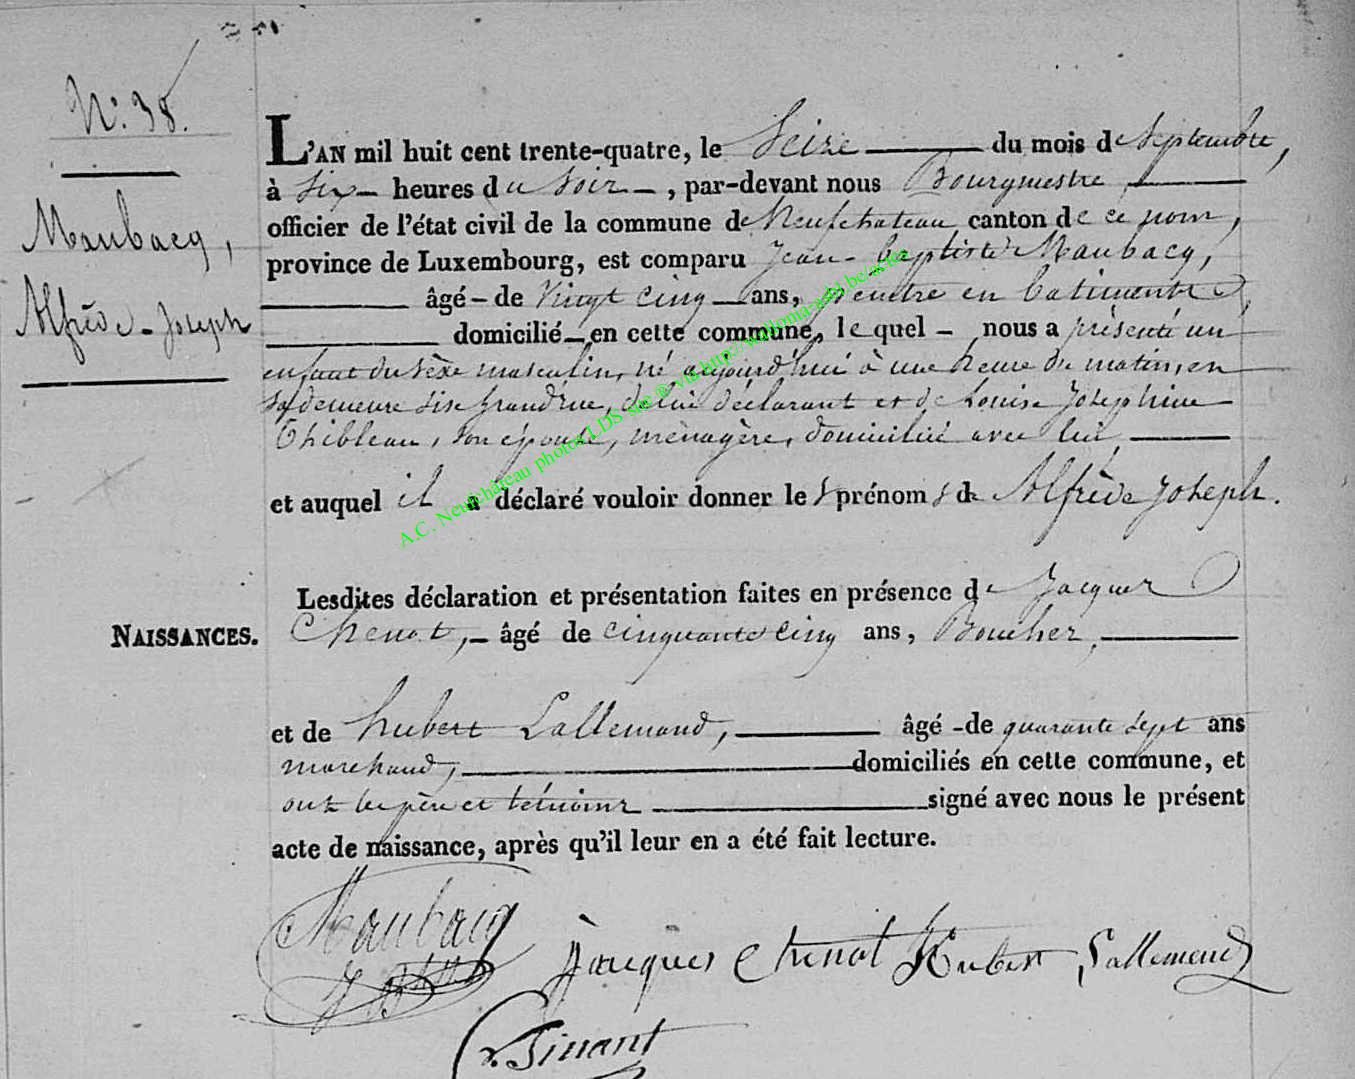 N.° 38.
Maubacq,
Alfrède-Joseph
L'AN mil huit cent trente-quatre, le Seize du mois de Septembre,
à six heures du soir, par-devant nous Bourgmestre
officier de l'état civil de la commune de Neufchateau canton de ce nom,
province de Luxembourg, est comparu Jean-baptiste Maubacq,
âgé de vingt cinq ans, peintre en batiments
domicilié en cette commune, lequel nous a présenté un
enfant du sèxe masculin, né aujourd'hui à une heure du matin, en
sa demeure sise Grand'rue, de lui déclarant et de Louise Josephine
Thibleau, son épouse, ménagère, domiciliée avec lui
et auquel il a déclaré vouloir donner les prénoms de Alfrède Joseph.
Lesdites déclaration et présentation faites en présence de Jacques
NAISSANCES.
Chenot, âgé de cinquante cinq ans, Boucher,
et de hubert Lallemand, âgé de quarante sept ans
marchand, domiciliés en cette commune, et
ont les père et témoins signé avec nous le présent
acte de naissance, après qu'il leur en a été fait lecture.
Maubacq
Jacques Chenot Hubert Lallemend
Pinant
A.C. Neufchâteau photos LDS site @ via http://wallonia-asbl.be/acka